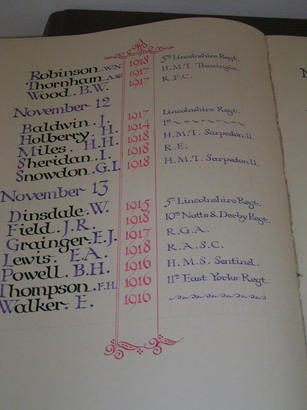 Robinson. W.N. 1918 5th Lincolnshire Regt.
Thornham. A.S. 1917 H.M.T.
Wood. B.W. 1917 R.F.C.
November 12
Baldwin. J. 1917 Lincolnshire Regt.
Holberry. H. 1914 1st
Miles. H.H. 1918 H.M.T. Sarpedon. 11.
Sheridan. I. 1918 R.E.
Snowdon. G.I. 1918 H.M.T. Sarpedon. 11.
November 13
Dinsdale. W. 1915 5th Lincolnshire Regt.
Field. J.R. 1918 10th Notts & Derby Regt.
Grainger. E.J. 1917 R.G.A.
Lewis. E.A. 1918 R.A.S.C.
Powell. B.H. 1916 H.M.S. Sentinel.
Thompson. F.H. 1916 11th East Yorks Regt.
Walker. E. 1916